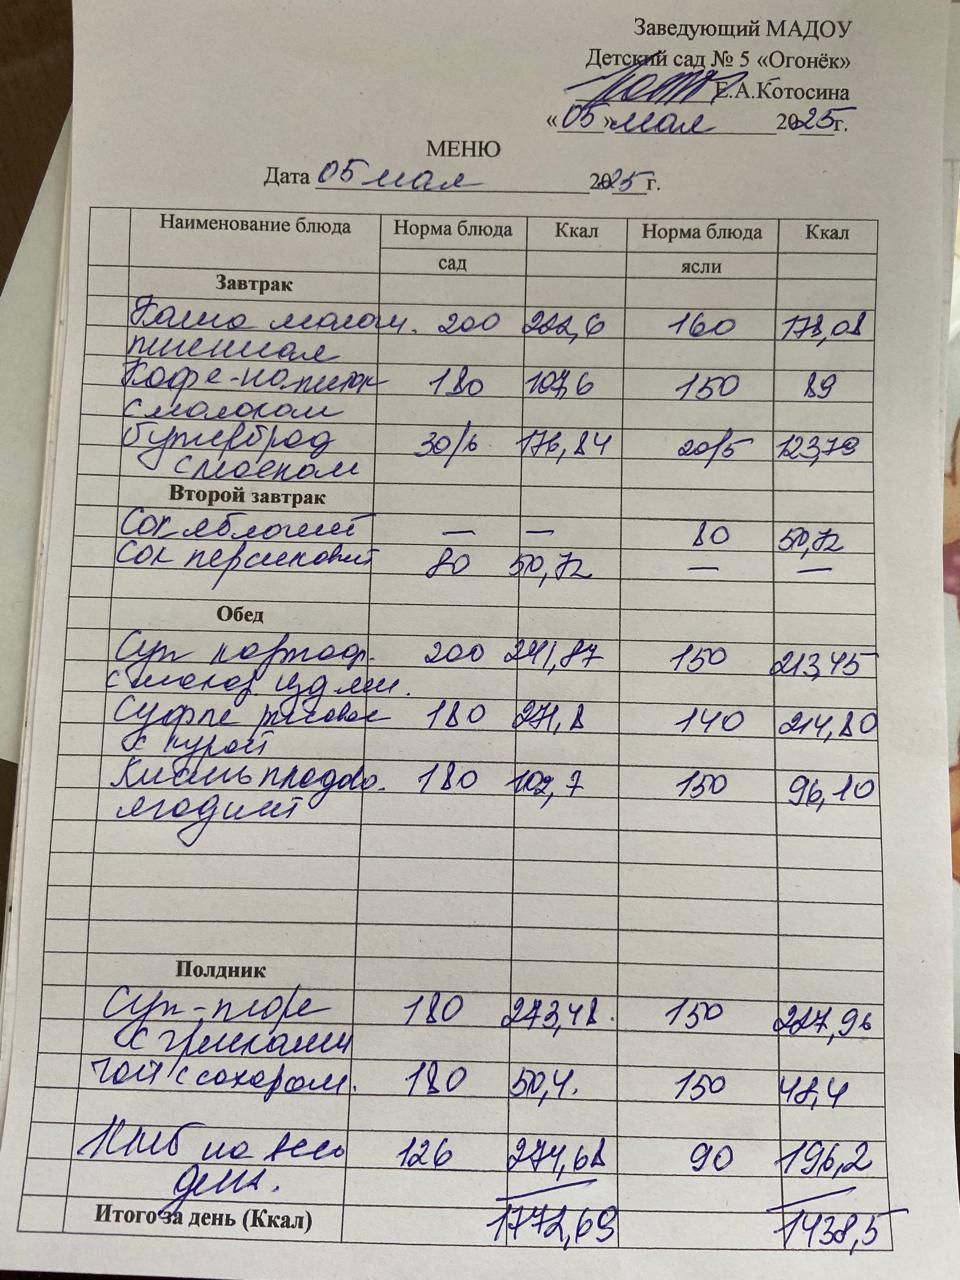 Заведующий МАДОУ
Детский сад № 5 «Огонёк»
Е.А.Котосина
«05» мая 2025г.
МЕНЮ
Дата 05 мая 2025 г.
Наименование блюда Норма блюда Ккал Норма блюда Ккал
сад ясли
Завтрак
Каша молоч. 200 222,6 160 178,08
пшенная
Кофе-напиток 180 107,6 150 89
с молоком
бутерброд 30/6 176,84 20/5 123,79
с маслом
Второй завтрак
Сок яблочный — — 80 50,72
Сок персиковый 80 50,72 — —
Обед
Суп картоф. 200 241,87 150 213,45
с макар. издели.
Суфле рисовое 180 271,8 140 214,80
с курой
Кисель плодово. 180 102,7 150 96,10
ягодный
Полдник
Суп-пюре 180 273,48. 150 227,96
с гренками
Чай с сахаром. 180 50,4. 150 48,4
Хлеб на весь 126 274,68 90 196,2
день.
Итого за день (Ккал) 1772,69 1438,5